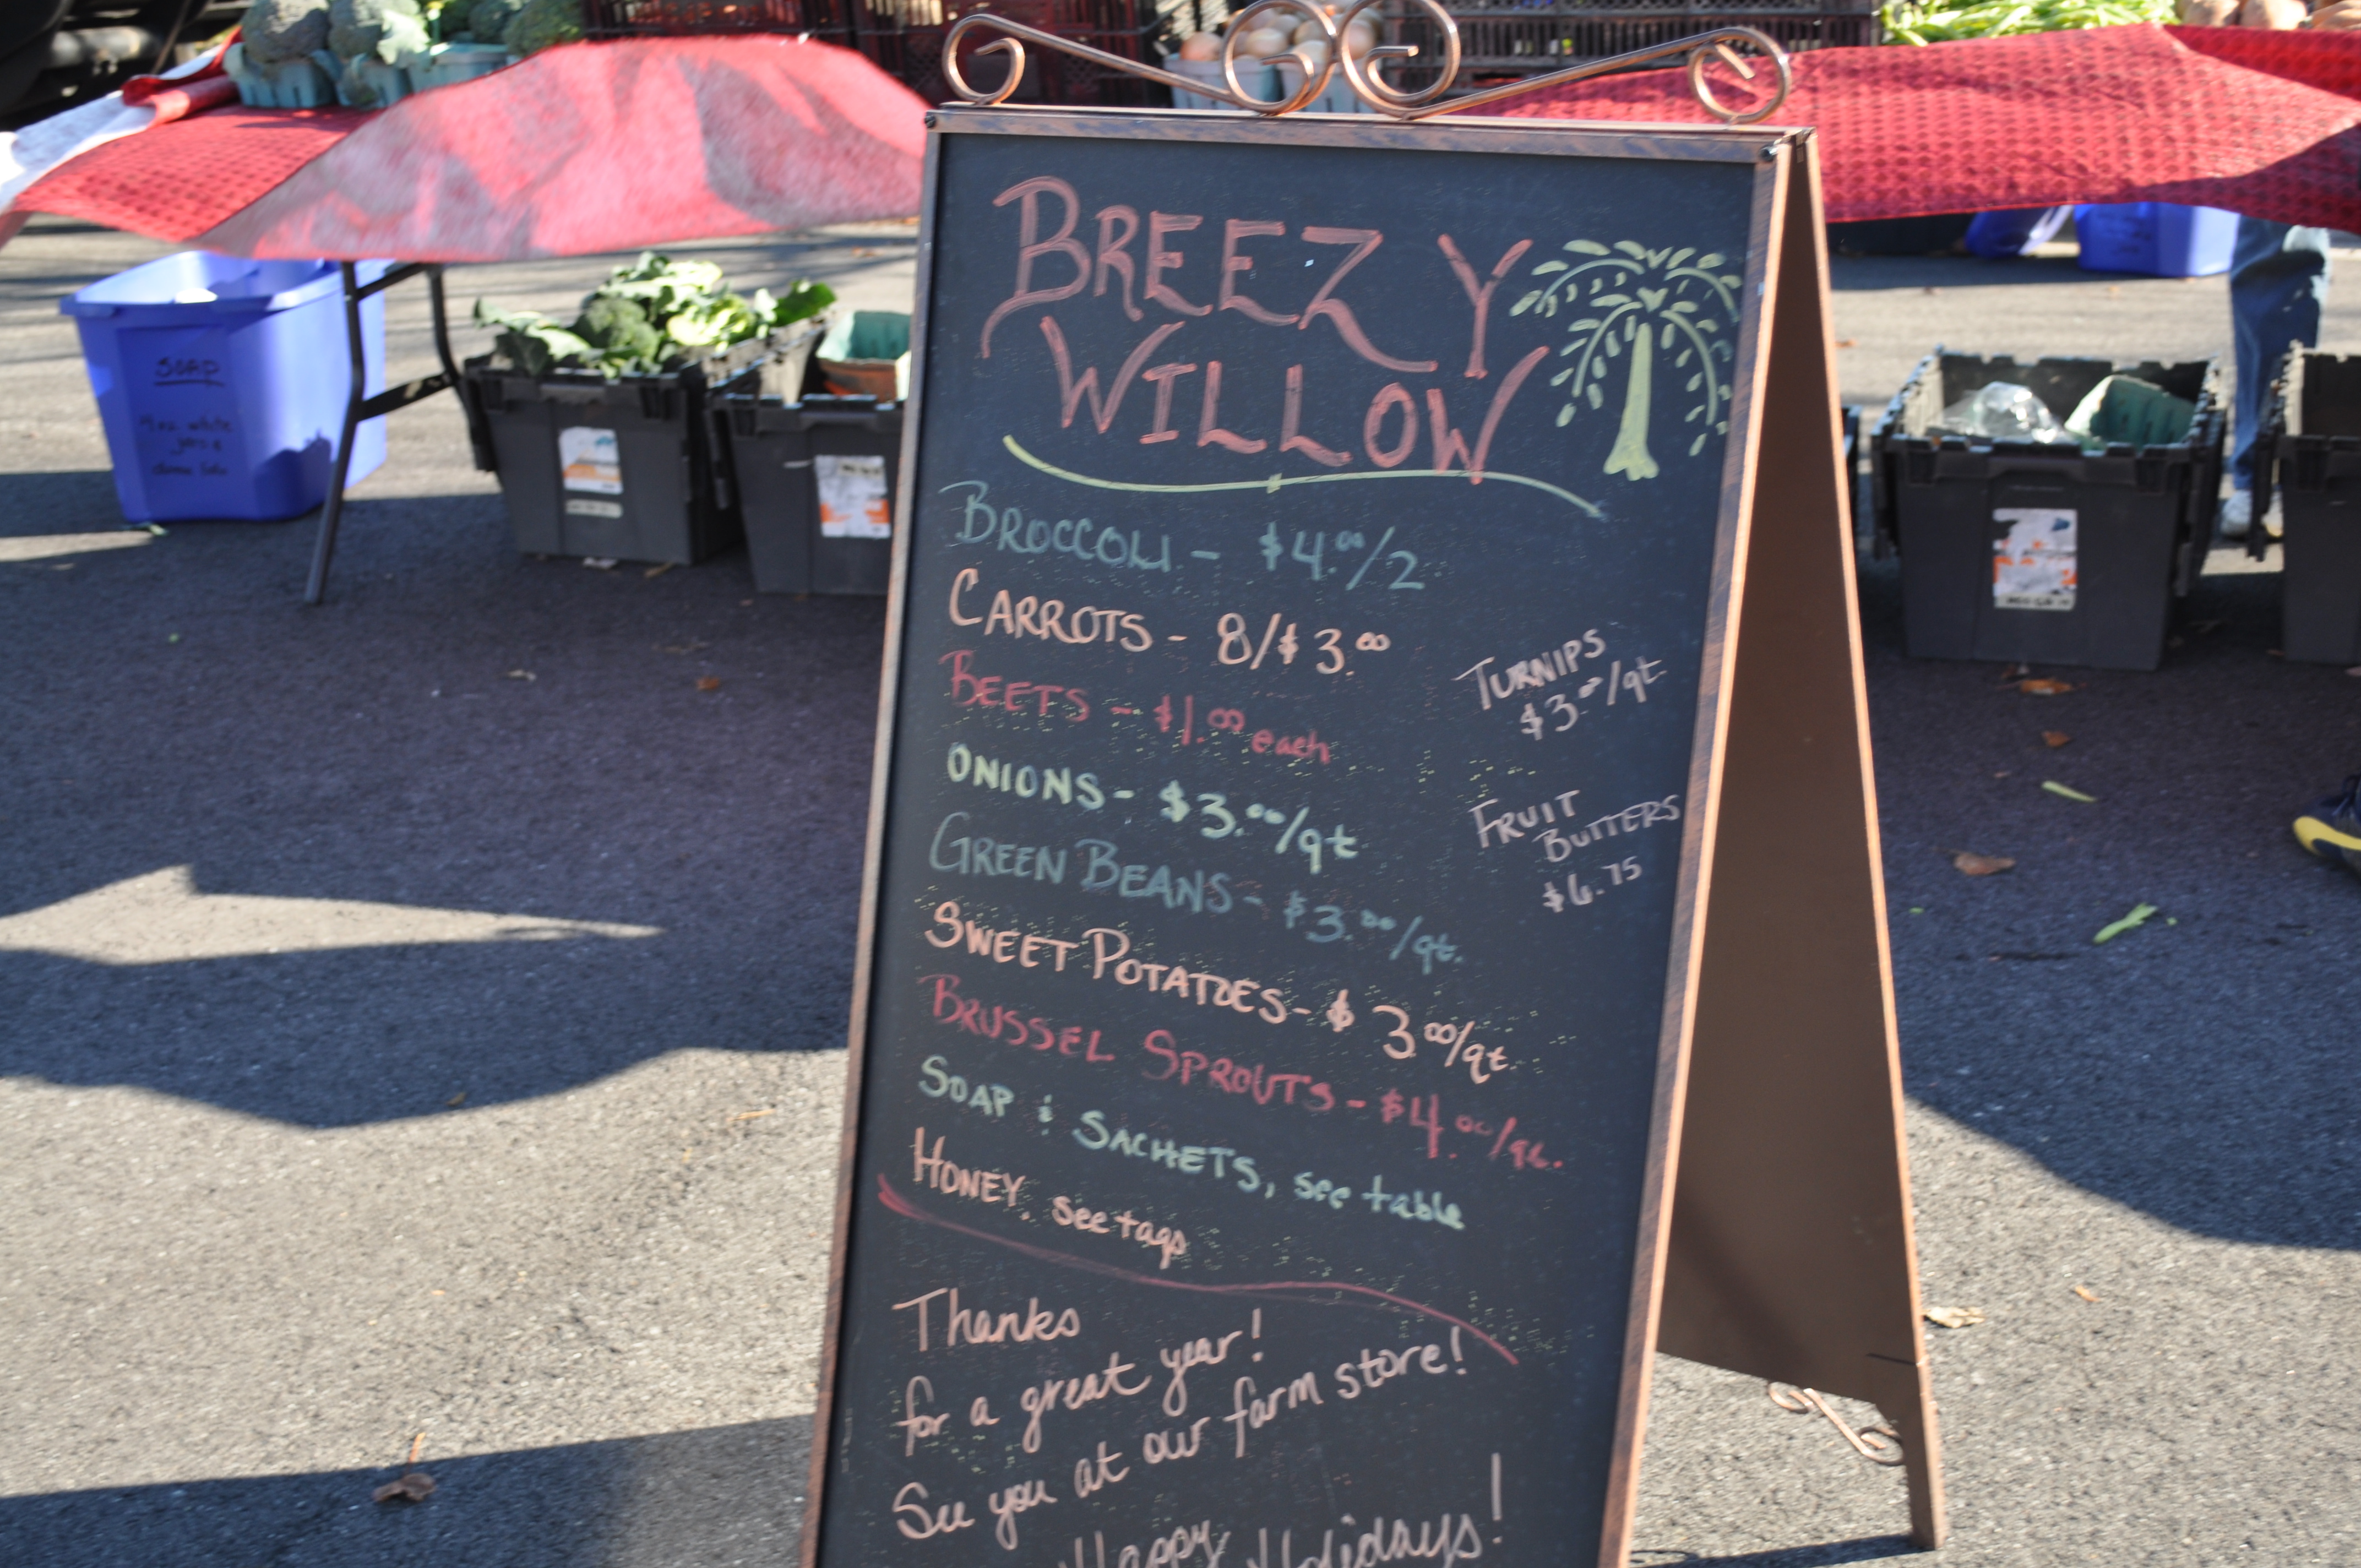 BREEZY
WILLOW
BROCCOLI - $4.00/2
CARROTS - 8/$3.00
BEETS - $1.00 each
ONIONS - $3.00/qt
GREEN BEANS - $3.00/qt.
SWEET POTATOES - $3.00/qt
BRUSSEL SPROUTS - $4.00/qt.
SOAP & SACHETS, see table
HONEY, see tags
TURNIPS
$3.00/qt
FRUIT
BUTTERS
$6.75
Thanks
for a great year!
See you at our farm store!
Happy Holidays!
SOAP